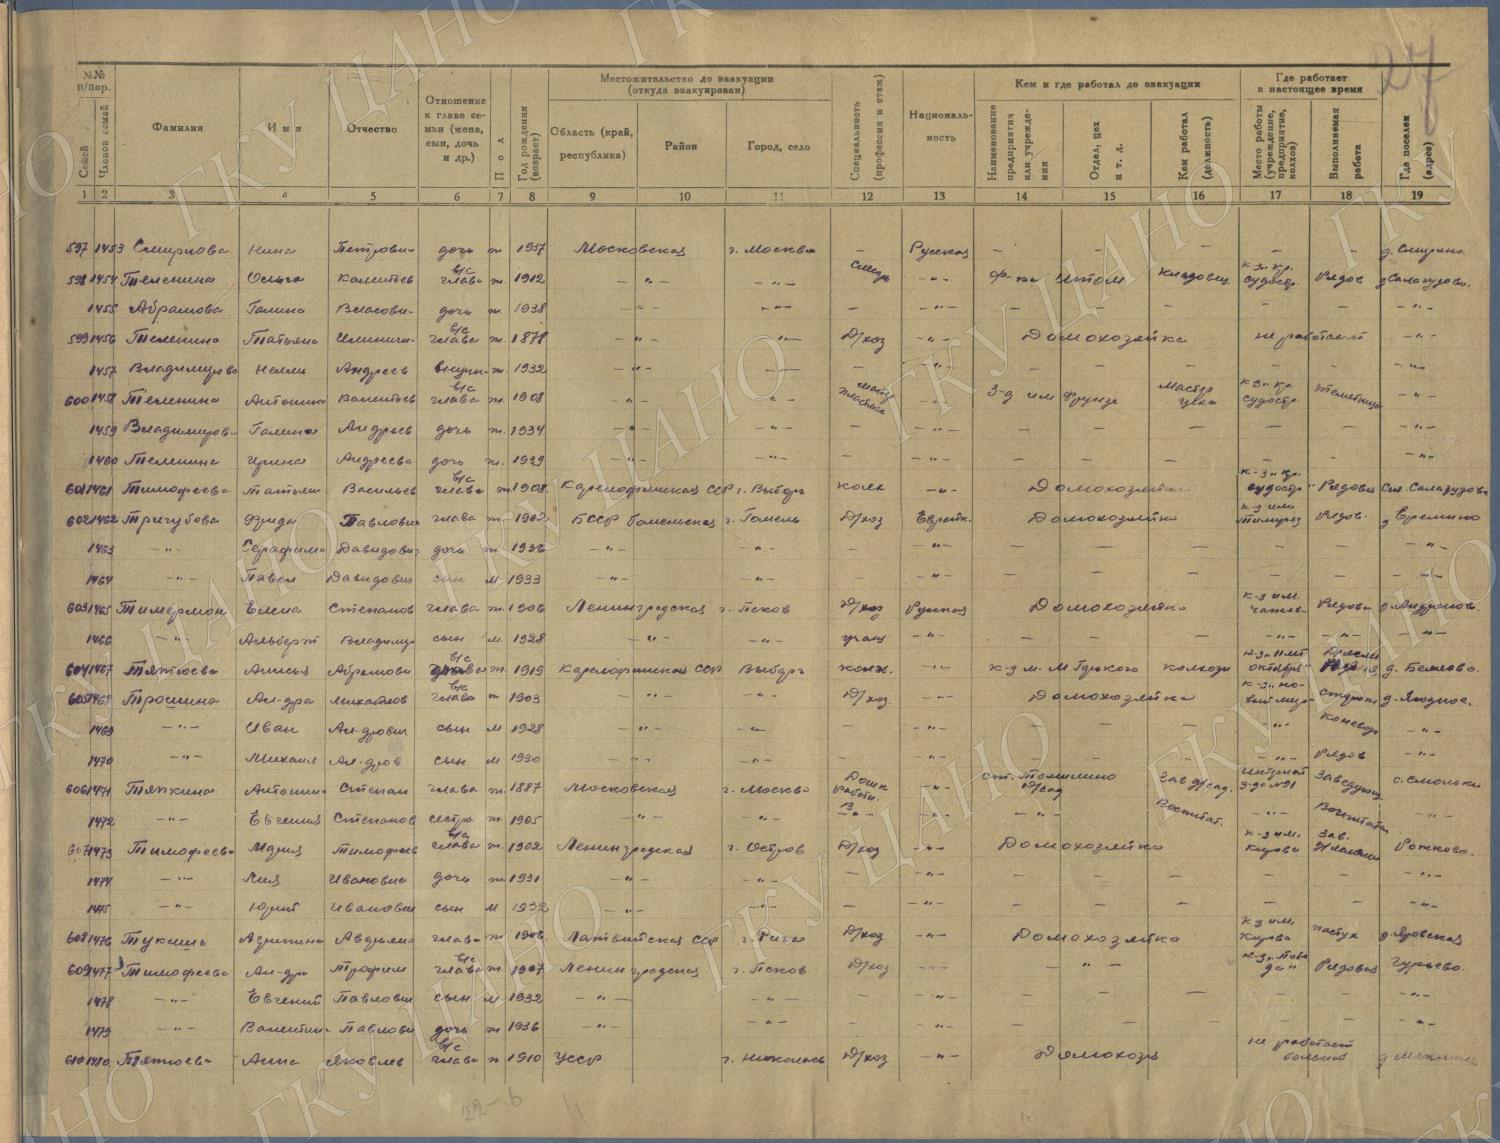 27
№№ п/пор. Местожительство до эвакуации (откуда эвакуирован) Кем и где работал до эвакуации Где работает в настоящее время
Семей Членов семей Фамилия Имя Отчество Отношение к главе семьи (жена, сын, дочь и др.) Пол Год рождения (возраст) Область (край, республика) Район Город, село Специальность (профессия и стаж) Националь-ность Наименование предприятия или учреждения Отдел, цех и т. д. Кем работал (должность) Место работы (учреждение, предприятие, колхоз) Выполняемая работа Где поселен (адрес)
1 2 3 4 5 6 7 8 9 10 11 12 13 14 15 16 17 18 19
597 1453 Смирнова Нина Петровн дочь ж 1937 Московская г. Москва — Русская — — — — —
598 1454 Теленина Ольга в/с глава ж. 1912 — " — — " — — " — Ф-ка к-з Кр. судостр. Рядов
1455 Абрамова Галина Власовн дочь ж. 1938 — " — — " — — — " — — — — — — — " —
599 1456 Теленина Татьяна в/с глава ж. 1871 — " — — " — Д/хоз — " — Домохозяйка не работает — " —
1457 Владимирова Нелли Андреев внучк ж. 1932 — " — — — " — — " —
600 1458 Теленина Антонина в/с глава ж. 1908 — " — — " — — " — З-д им Фрунзе Мастер цеха к-з Кр. судостр. — " —
1459 Владимиров Галина Андреев дочь ж. 1934 — " — — " — — — " — — — — — — — " —
1460 Теленина Ирина Андреева дочь ж. 1939 — " — — " — — — " — — — — — — — " —
601 1461 Тимофеева Татьян Васильев в/с глава ж 1908 Карелофинская ССР г. Выборг колх — " — Домохозяйка к-з "Кр. судостр" Рядовая
602 1462 Тригубова Фрида Павловн глава ж. 1902 БССР Гомельская г. Гомель Д/хоз Еврейк. Домохозяйка к-з им Рядов. д Еремино
1463 — " — Серафима Давидовн дочь ж. 1936 — " — — " — — — " — — — — — — — " —
1464 — " — Павел Давидович сын М 1933 — " — — " — — — " — — — — — — — " —
603 1465 Тимерман Елена Степанов глава ж. 1906 Ленинградская г. Псков Д/хоз Русская Домохозяйка к-з им. Рядова
1466 — " — Альберт Владимир сын М. 1928 — " — — " — учащ — " — — — — — " — — " — — " —
604 1467 Тятюева Анисья Абрамовн в/с глава ж. 1919 Карелофинская ССР Выборг колх. — " — к-з м. М Горького колхозн октября"
605 1468 Трошина Ал-дра Михайлов в/с глава ж 1903 — " — — " — Д/хоз. — " — Домохозяйка к-з "но-вый мир"
1469 — " — Иван Ал-дрович сын М 1928 — " — — " — — — " — — — — — " — Коневод — " —
1470 — " — Михаил Ал-дров сын М 1930 — " — — " — — — " — — — — — " — Рядов — " —
606 1471 Тяпкина Антонин Степан глава ж. 1887 Московская г. Москва Дошк работн. — " — ст. Томилино Д/сад Зав д/сад. д-до №91 Заведующ. с. Смольки
1472 — " — Евгения Степанов сестра ж. 1905 — " — — " — — " — — " — — " — Воспитат. — " — Воспитател — " —
607 1473 Тимофеева Мария Тимофеев в/с глава ж 1902 Ленинградская г. Остров Д/хоз — " — Домохозяйка к-з им. Кирова Зав. Рожково.
1474 — " — Лия Ивановна дочь ж. 1931 — " — — " — — — " — — — — — — — " —
1475 — " — Юрий Иванович сын М 1932 — " — — " — — — " — — — — — — — " —
608 1476 Авдеевн глава ж 1906 Латвийская ССР г. Рига Д/хоз — " — Домохозяйка к-з им. Кирова пастух
609 1477 Тимофеева Ал-дра Трофим в/с глава ж 1907 Ленинградская г. Псков Д/хоз — " — — " — к-з "Побе да" Рядовая Гурьево.
1478 — " — Евгений Павлович сын М 1932 — " — — " — — — " — — — — — — — " —
1479 — " — Валентин Павловн дочь ж 1936 — " — — " — — — " — — — — — — — " —
610 1480 Тятюева Анна Яковлев в/с глава ж 1910 УССР Д/хоз — " — Домохозя не работает больная
22-6
ГКУ ЦАНО